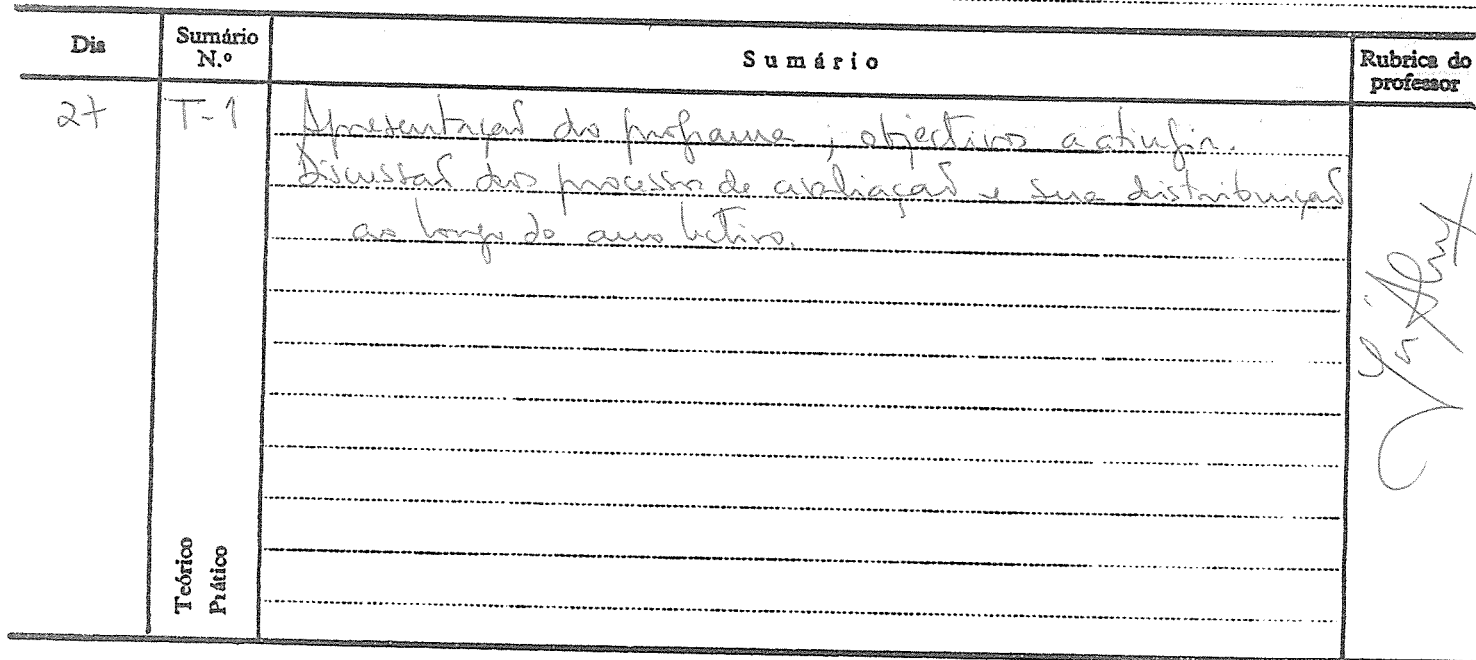 Dia
Sumário N.º
Sumário
Rubrica do professor
27
T-1
Apresentação do programa; objectivos a atingir.
Discussão dos processos de avaliação e sua distribuição
ao longo do ano lectivo.
Teórico
Prático